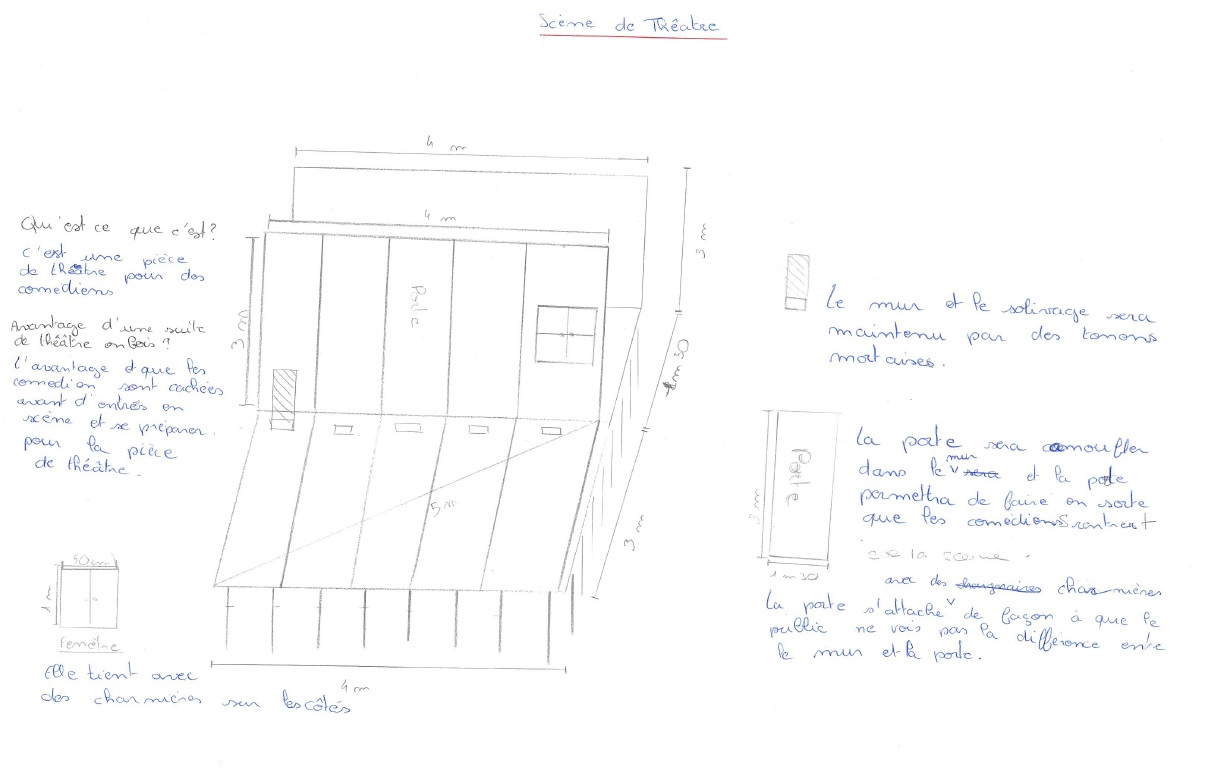 Scène de Théâtre
4 m
4 m
3 m
Qu'est ce que c'est?
c'est une pièce
de théâtre pour des
comediens
Avantage d'une suite
de théâtre en Bois?
l'avantage que les
comedien sont cachées
avant d'entrés en
scène et se préparer.
pour la pièce
de théâtre.
3 m
Porte
1m30
5m
3 m
4 m
40cm
1m
Fenêtre
Elle tient avec
des charnières sur les côtés
Le mur et le solivage sera
maintenu par des tenons
mortaises.
3m
Porte
1m30
La porte sera camoufler
dans le mur et la porte
permettra de faire en sorte
que les comédiens rentrent
La porte s'attache avec des charnières de façon à que le
public ne vois pas la différence entre
le mur et la porte.